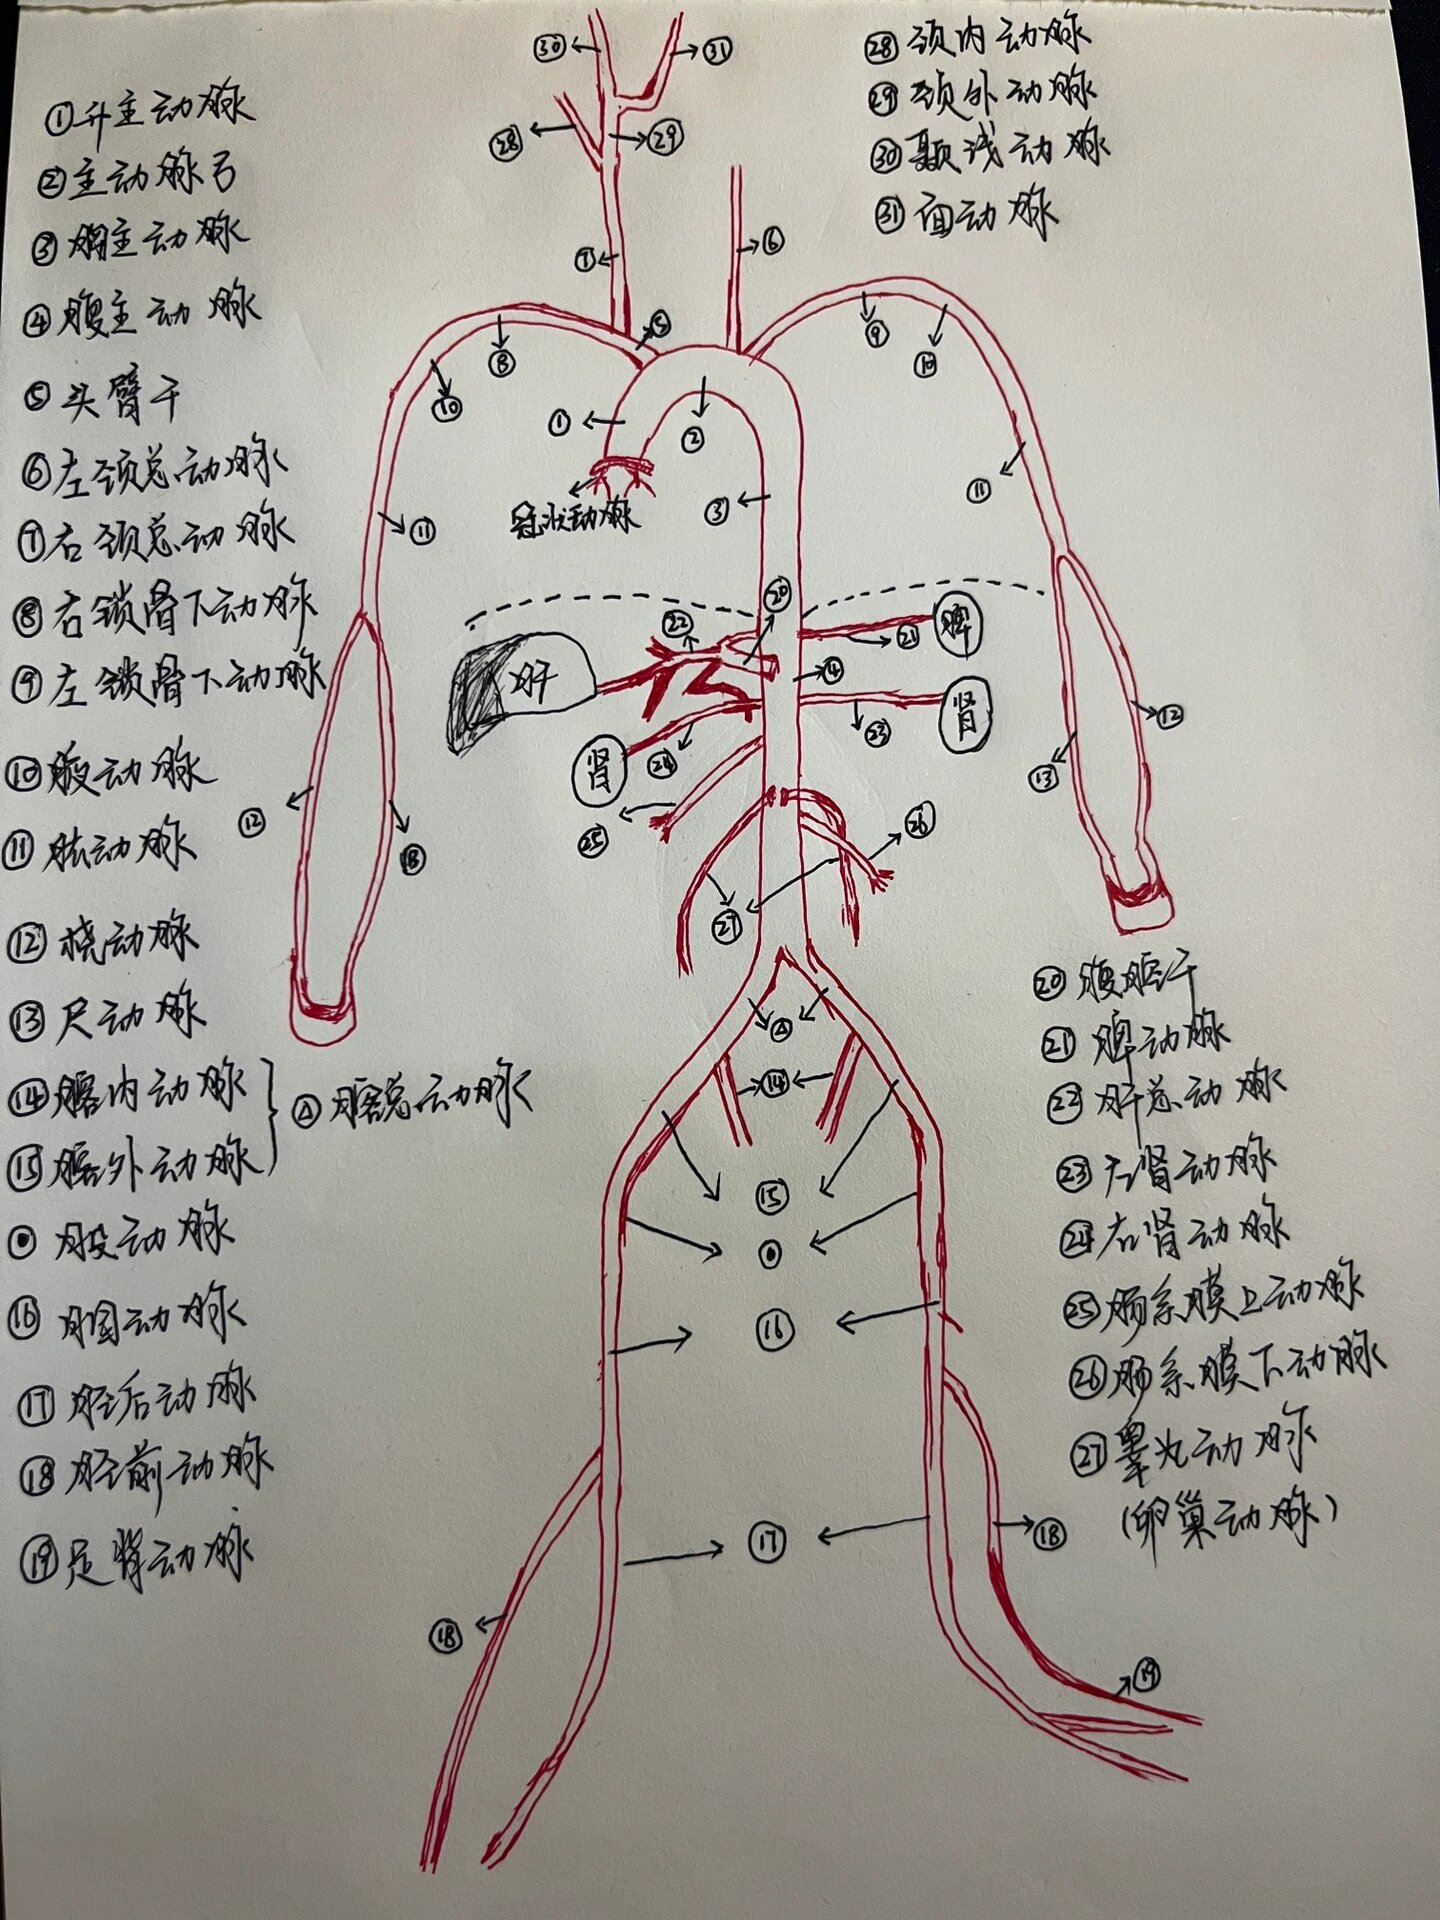 ①升主动脉
②主动脉弓
③胸主动脉
④腹主动脉
⑤头臂干
⑥左颈总动脉
⑦右颈总动脉
⑧右锁骨下动脉
⑨左锁骨下动脉
⑩腋动脉
⑪肱动脉
⑫桡动脉
⑬尺动脉
⑭髂内动脉
⑮髂外动脉
△髂总动脉
股动脉
⑯腘动脉
⑰胫后动脉
⑱胫前动脉
⑲足背动脉
㉘颈内动脉
㉙颈外动脉
㉚颞浅动脉
㉛面动脉
㉚
㉛
㉘
㉙
⑦
⑥
⑤
⑧
⑨
⑩
⑩
①
②
③
⑪
⑪
冠状动脉
⑳
㉒
㉑
脾
肝
④
肾
肾
㉔
㉓
㉕
㉖
㉗
⑫
⑬
⑫
⑬
△
⑭
⑮
⑯
⑰
⑱
⑱
⑲
⑳腹腔干
㉑脾动脉
㉒肝总动脉
㉓左肾动脉
㉔右肾动脉
㉕肠系膜上动脉
㉖肠系膜下动脉
㉗睾丸动脉
(卵巢动脉)